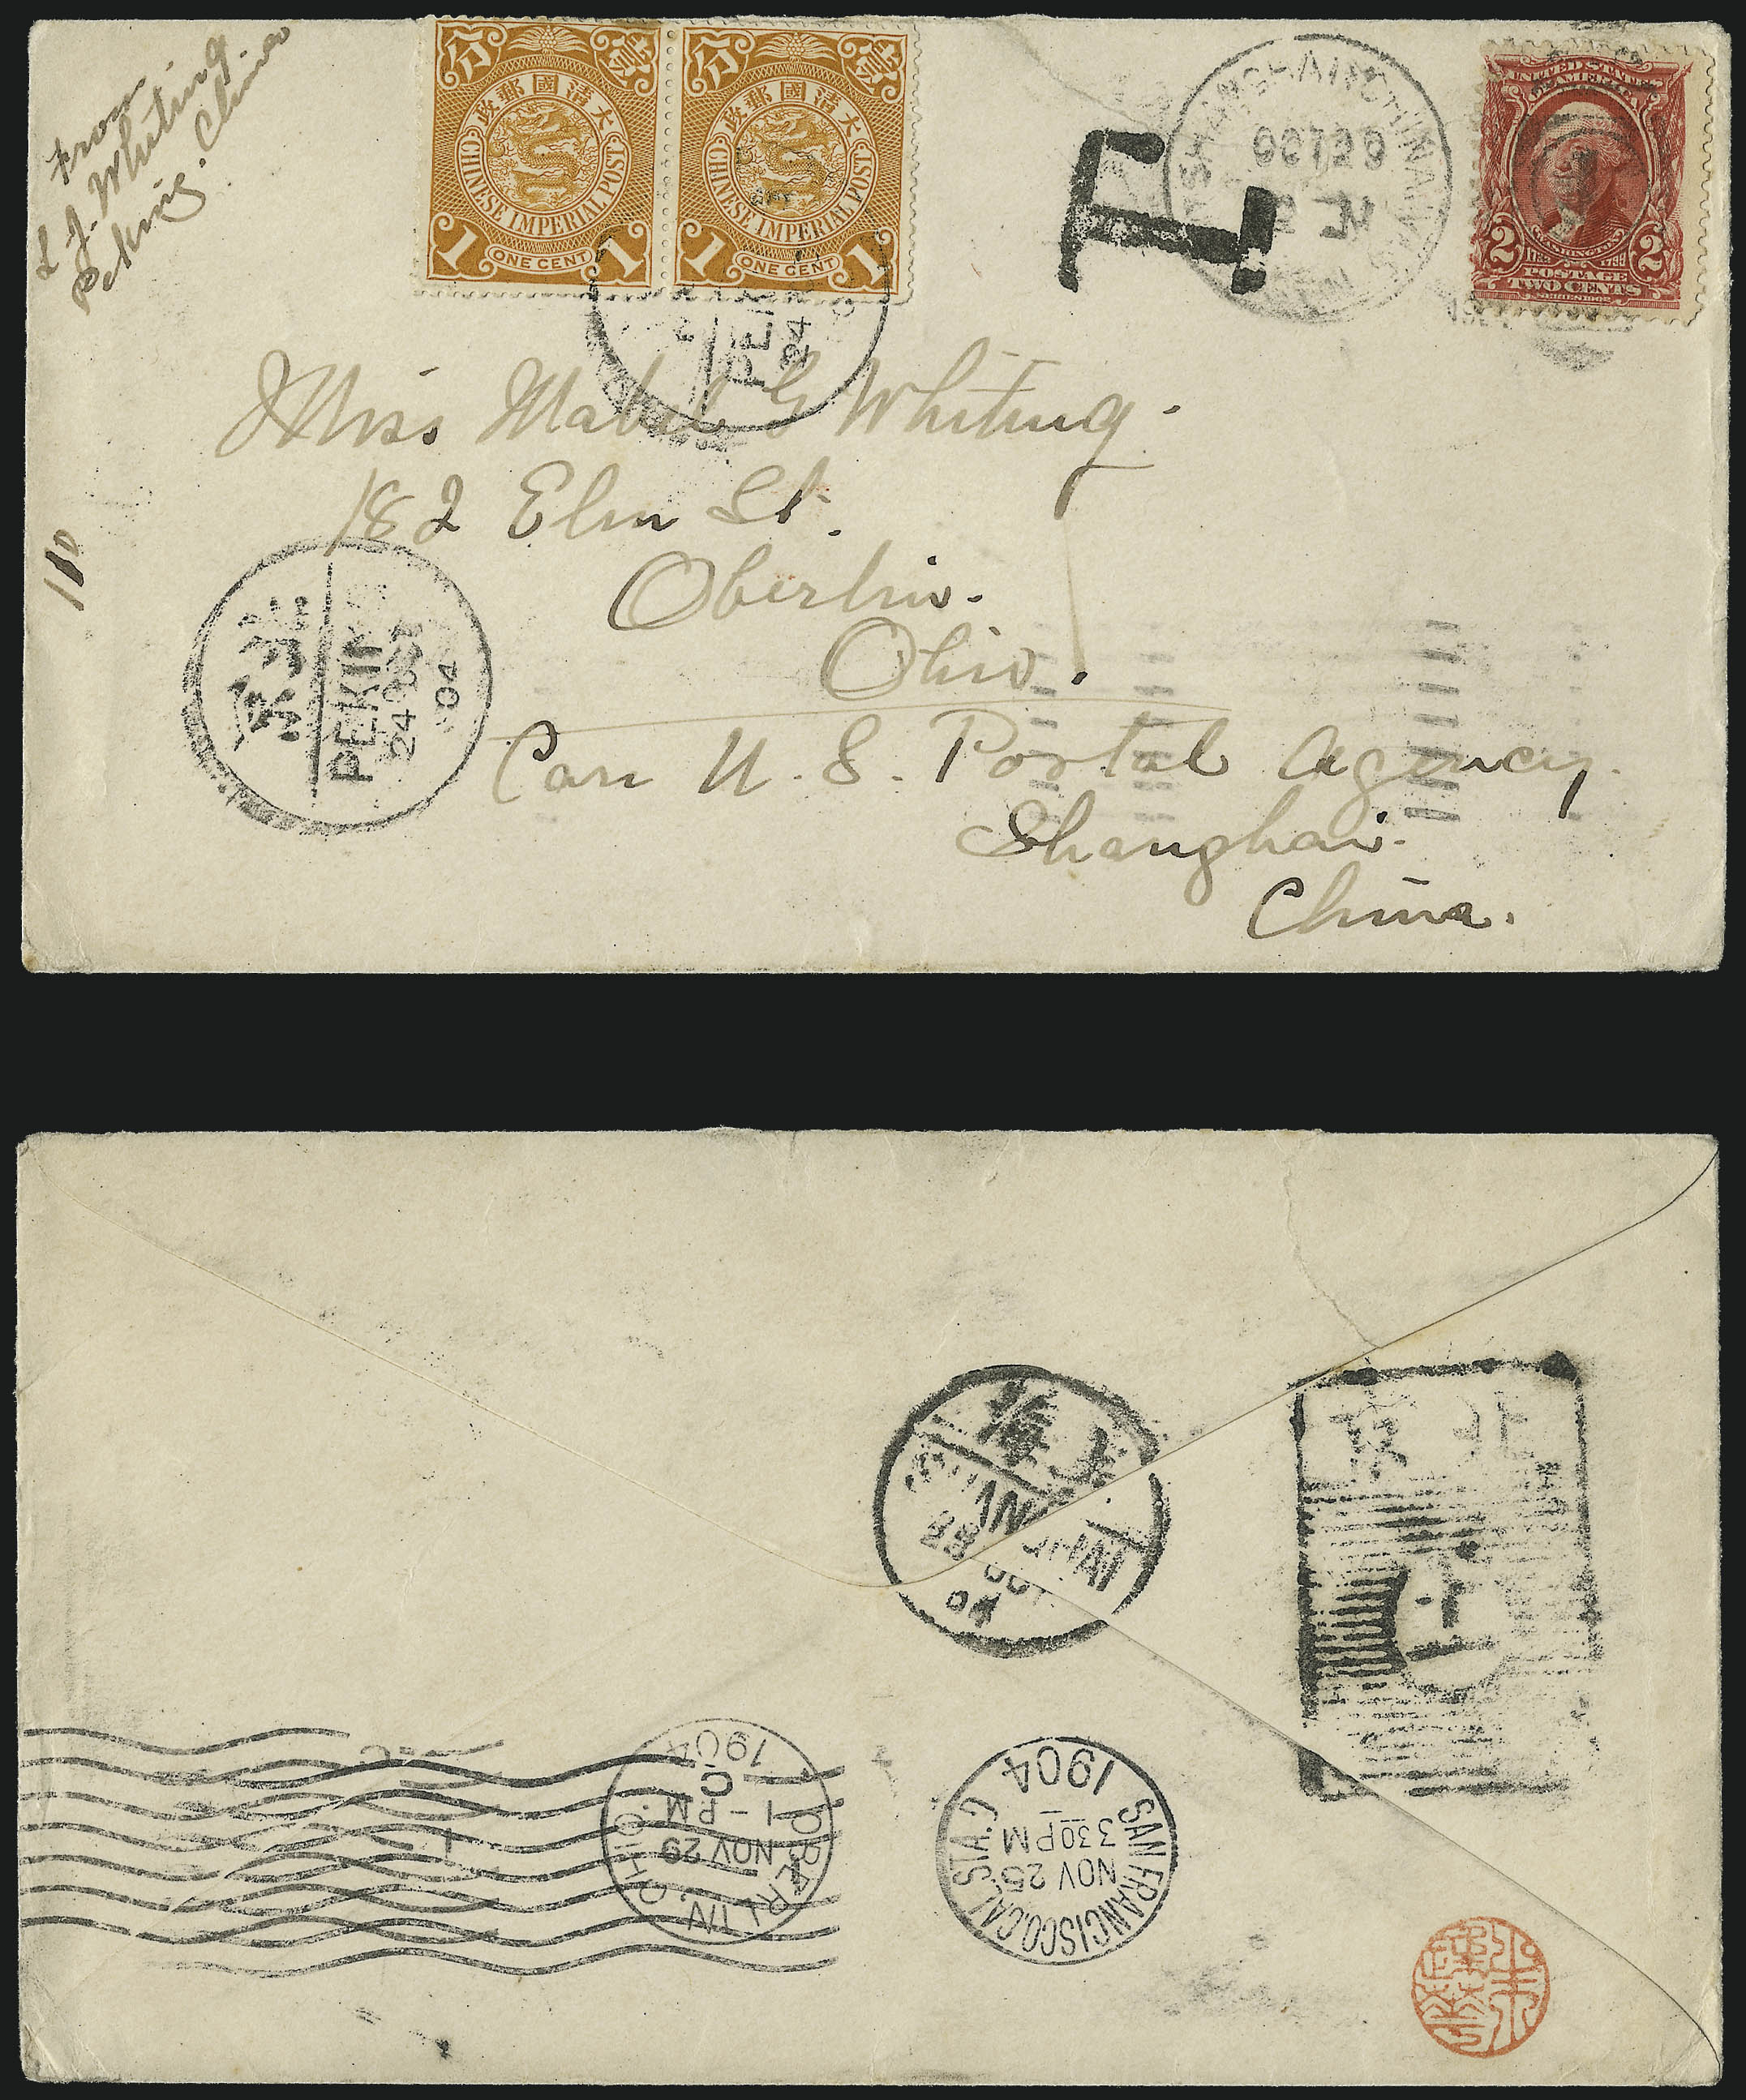 From
L. J. Whiting.
Peking. China
分 壹
大清國郵政
CHINESE IMPERIAL POST
1 ONE CENT 1
分 壹
大清國郵政
CHINESE IMPERIAL POST
1 ONE CENT 1
T
SHANGHAI CHINA
OCT 29
UNITED STATES
OF AMERICA
WASHINGTON
2 POSTAGE 2
TWO CENTS
SERIES 1902
PE
24
Miss Mabel G Whiting.
182 Elm St.
Oberlin.
Ohio.
Care U. S. Postal Agency.
Shanghai.
China.
110
京
PEKING
24 OCT
04
上海
SHANGHAI
28 OCT
04
北京
OBERLIN, OHIO.
NOV 29
1-PM
C
1904
SAN FRANCISCO, CAL. STA. D
NOV 25
3 30 PM
1904